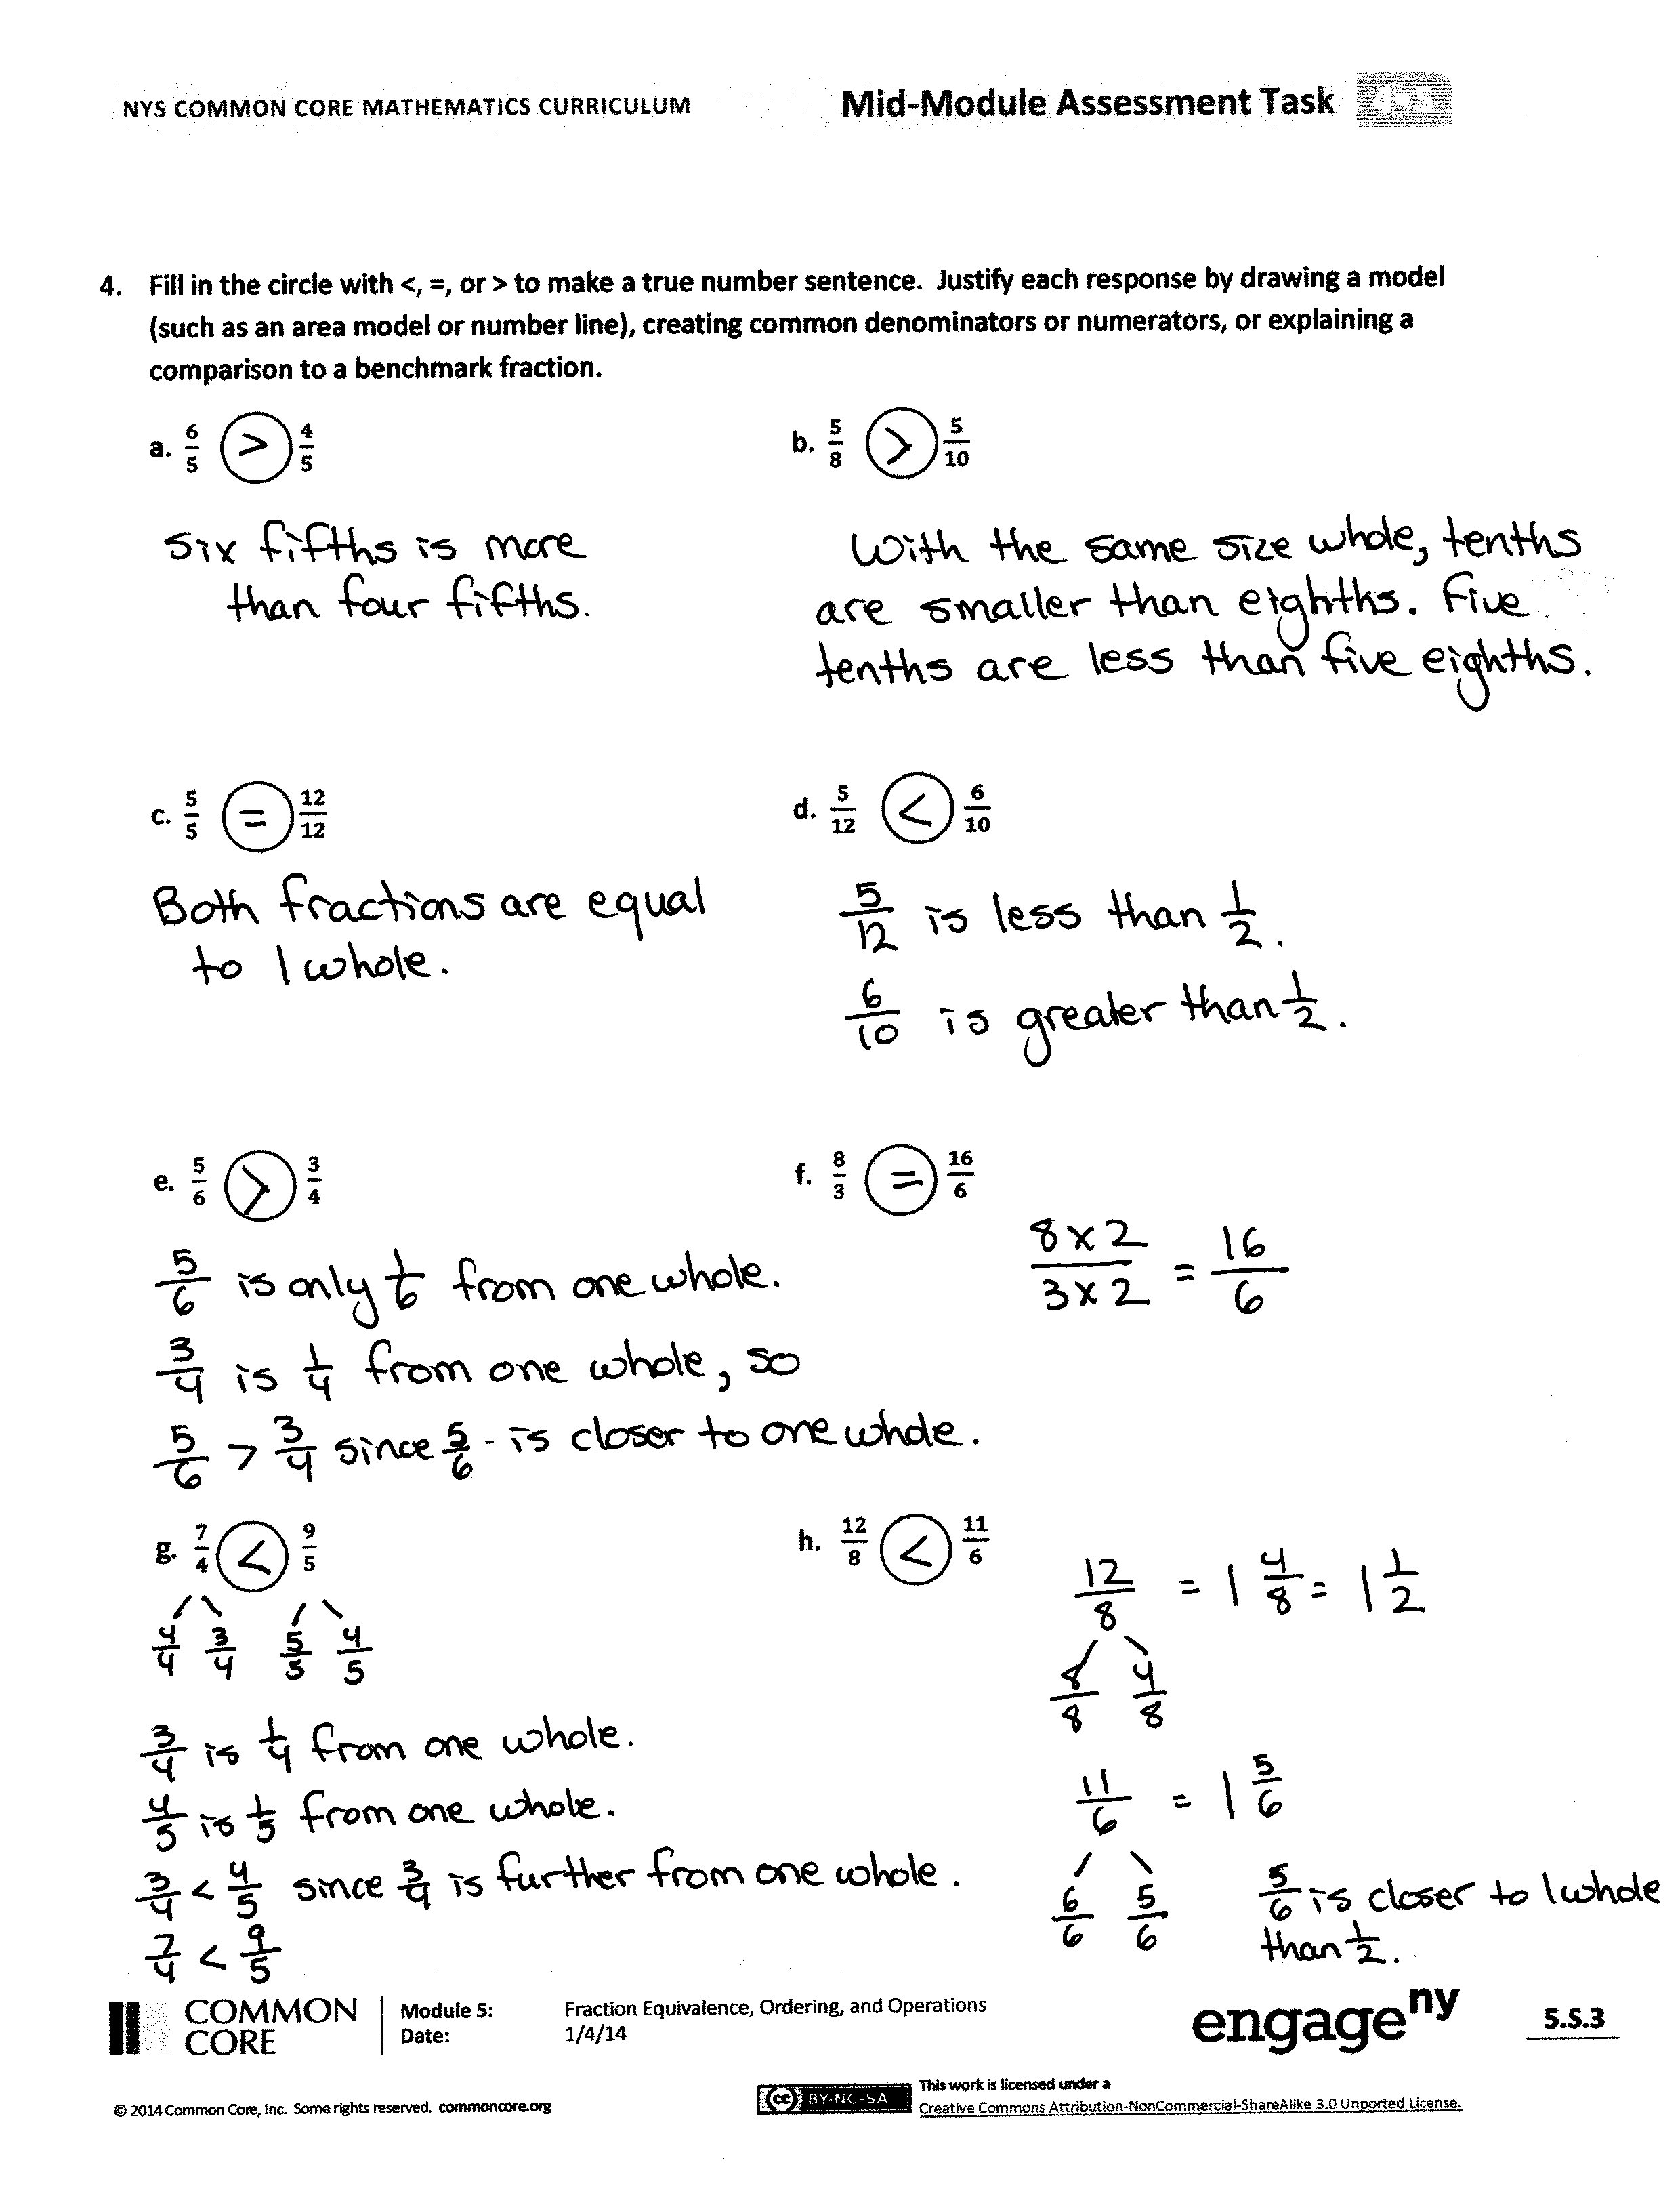 NYS COMMON CORE MATHEMATICS CURRICULUM
Mid-Module Assessment Task 4•5
4. Fill in the circle with <, =, or > to make a true number sentence. Justify each response by drawing a model
(such as an area model or number line), creating common denominators or numerators, or explaining a
comparison to a benchmark fraction.
a. 6/5 > 4/5
Six fifths is more
than four fifths.
b. 5/8 > 5/10
With the same size whole, tenths
are smaller than eighths. Five
tenths are less than five eighths.
c. 5/5 = 12/12
Both fractions are equal
to 1 whole.
d. 5/12 < 6/10
5/12 is less than 1/2.
6/10 is greater than 1/2.
e. 5/6 > 3/4
5/6 is only 1/6 from one whole.
3/4 is 1/4 from one whole, so
5/6 > 3/4 since 5/6 is closer to one whole.
f. 8/3 = 16/6
8 x 2 / 3 x 2 = 16/6
g. 7/4 < 9/5
4/4 3/4 5/5 4/5
3/4 is 1/4 from one whole.
4/5 is 1/5 from one whole.
3/4 < 4/5 since 3/4 is further from one whole.
7/4 < 9/5
h. 12/8 < 11/6
12/8 = 1 4/8 = 1 1/2
8/8 4/8
11/6 = 1 5/6
6/6 5/6
5/6 is closer to 1 whole
than 1/2.
COMMON
CORE
Module 5: Fraction Equivalence, Ordering, and Operations
Date: 1/4/14
engage ny
5.S.3
© 2014 Common Core, Inc. Some rights reserved. commoncore.org
cc BY-NC-SA
This work is licensed under a
Creative Commons Attribution-NonCommercial-ShareAlike 3.0 Unported License.